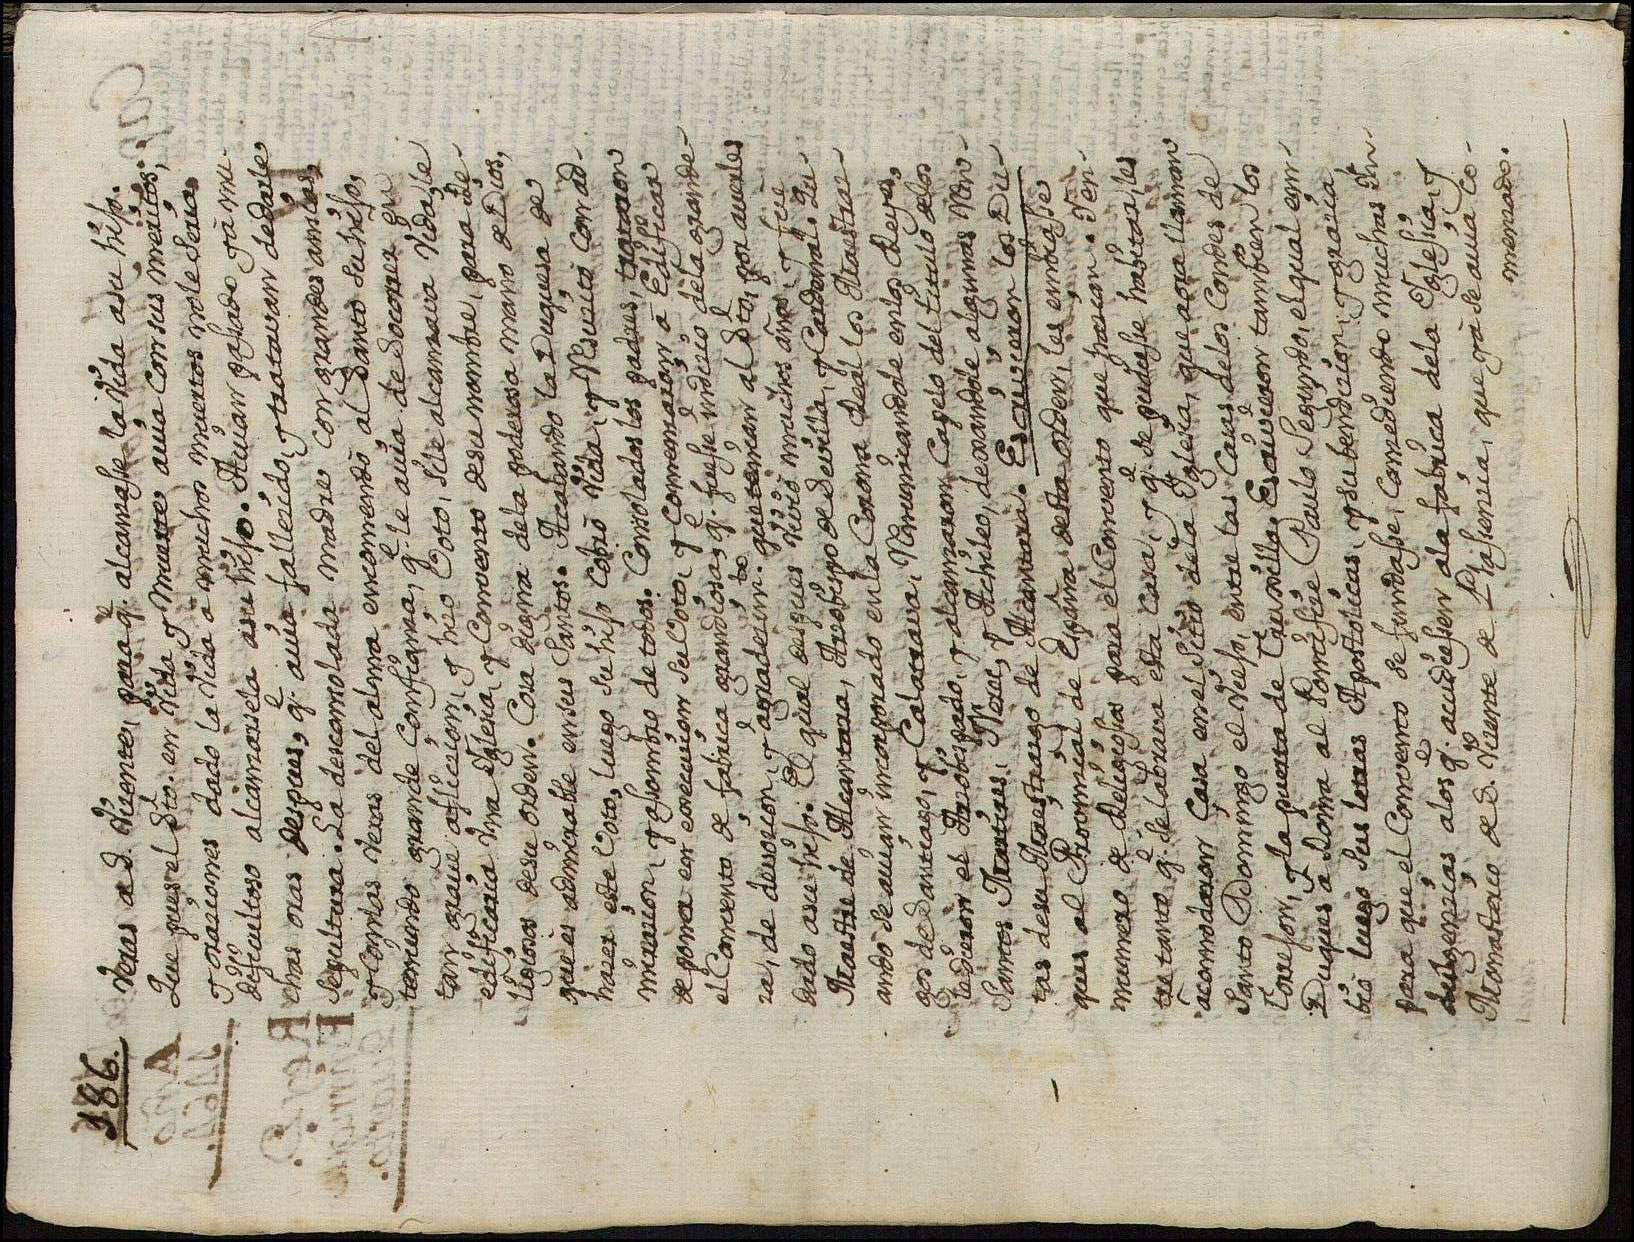 186.
veras a S. Vicente, para q.e alcansase la Vida a su hijo.
Que pues el S.to en Vida, y Muerte auia con sus meritos,
y oraciones dado la vida a muchos muertos no le seria
dificultoso alcansarsela a su hijo. Auian pasado ya mu-
chas oras despues, q.e auia fallecido, y tratauan de darle
sepultura. La desconsolada madre con grandes ansias,
y con las veras del alma encomendò al Santo su hijo,
teniendo grande Confiansa, q.e le auia de Socorrer en
tan graue aflicción, y hiso Voto, si le alcansaua Vida, le
edificaria vna Iglesia, y Convento de su nombre, para Re-
ligiosos de su Orden. Cosa digna dela poderosa mano de Dios,
que es admirable en sus Santos. Acabando la Duquesa de
hacer este Voto, luego su hijo Cobrò Vida, y Resucitò con ad-
miracion, y asombro de todos. Consolados los padres trataron
de poner en execucion su Voto, y Comensaron à Edificar
el Convento de fabrica grandiosa, q.e fuese indicio dela grande-
za, de deuocion, y agradecim.to que tenian al S.to por auerles
dado a su hijo. El qual despues Viviò muchos años, y fue
Maestre de Alcantara, Arsobispo de Sevilla, y Cardenal. Qu-
ando se auian incorporado en la Corona Real los Maestras-
gos de Santiago, y Calatraua, Renunciandole en los Reyes,
tubieron el Arsobispado, y alcansaron Capelo del titulo delos
Santos Martires, Nereo, y Achileo, dexandole algunas Ren-
tas de su Maestrasgo de Alcantara. Escriuieron los Du-
ques al Provincial de España desta orden, les embiase
numero de Religiosos para el Convento que hacian. En-
tre tanto q.e se labraua esta Casa, y q.e se pudiese habitar, les
acomodaron Casa en el Sitio dela Iglesia, que aora llaman
Santo Domingo el Viejo, entre las Casas delos Condes de
Torrejon, y la puerta de Truxillo. Escriuieron tambien los
Duques a Roma al Pontifice Paulo Segundo, el qual em-
biò luego sus letras Apostolicas, y su bendicion, y gracia
para que el Convento se fundase, Concediendo muchas In-
dulgencias a los q.e acudiesen a la fabrica dela Iglesia, y
Monasterio de S. Vicente de Plasencia, que ya se auia Co-
mensado.